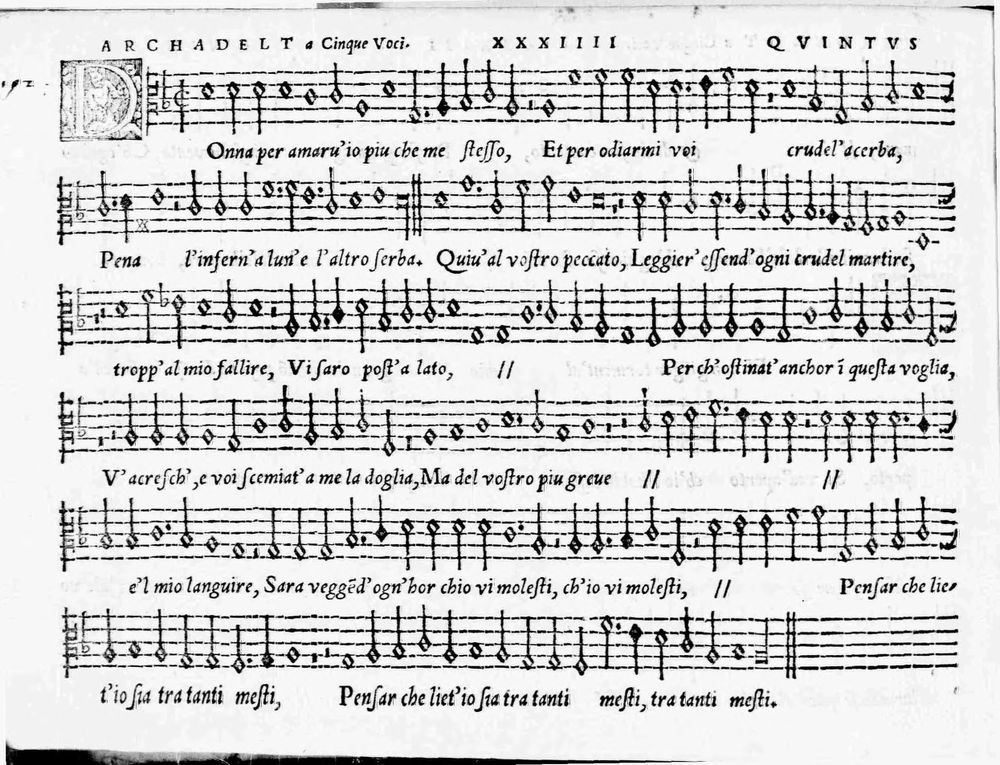 ARCHADELT a Cinque Voci. XXXIIII QVINTVS
192
DOnna per amaru'io piu che me ſteſſo, Et per odiarmi voi crudel'acerba,
Pena l'infern'a lun'e l'altro ſerba. Quiu'al voſtro peccato, Leggier'eſſend'ogni crudel martire,
tropp'al mio fallire, Vi ſaro poſt'a lato, // Per ch'oſtinat'anchor ĩ queſta voglia,
V'acreſch', e voi ſcemiat'a me la doglia, Ma del voſtro piu greue // //
e'l mio languire, Sara veggẽd'ogn'hor chio vi moleſti, ch'io vi moleſti, // Penſar che lie-
t'io ſia tra tanti meſti, Penſar che liet'io ſia tra tanti meſti, tra tanti meſti.